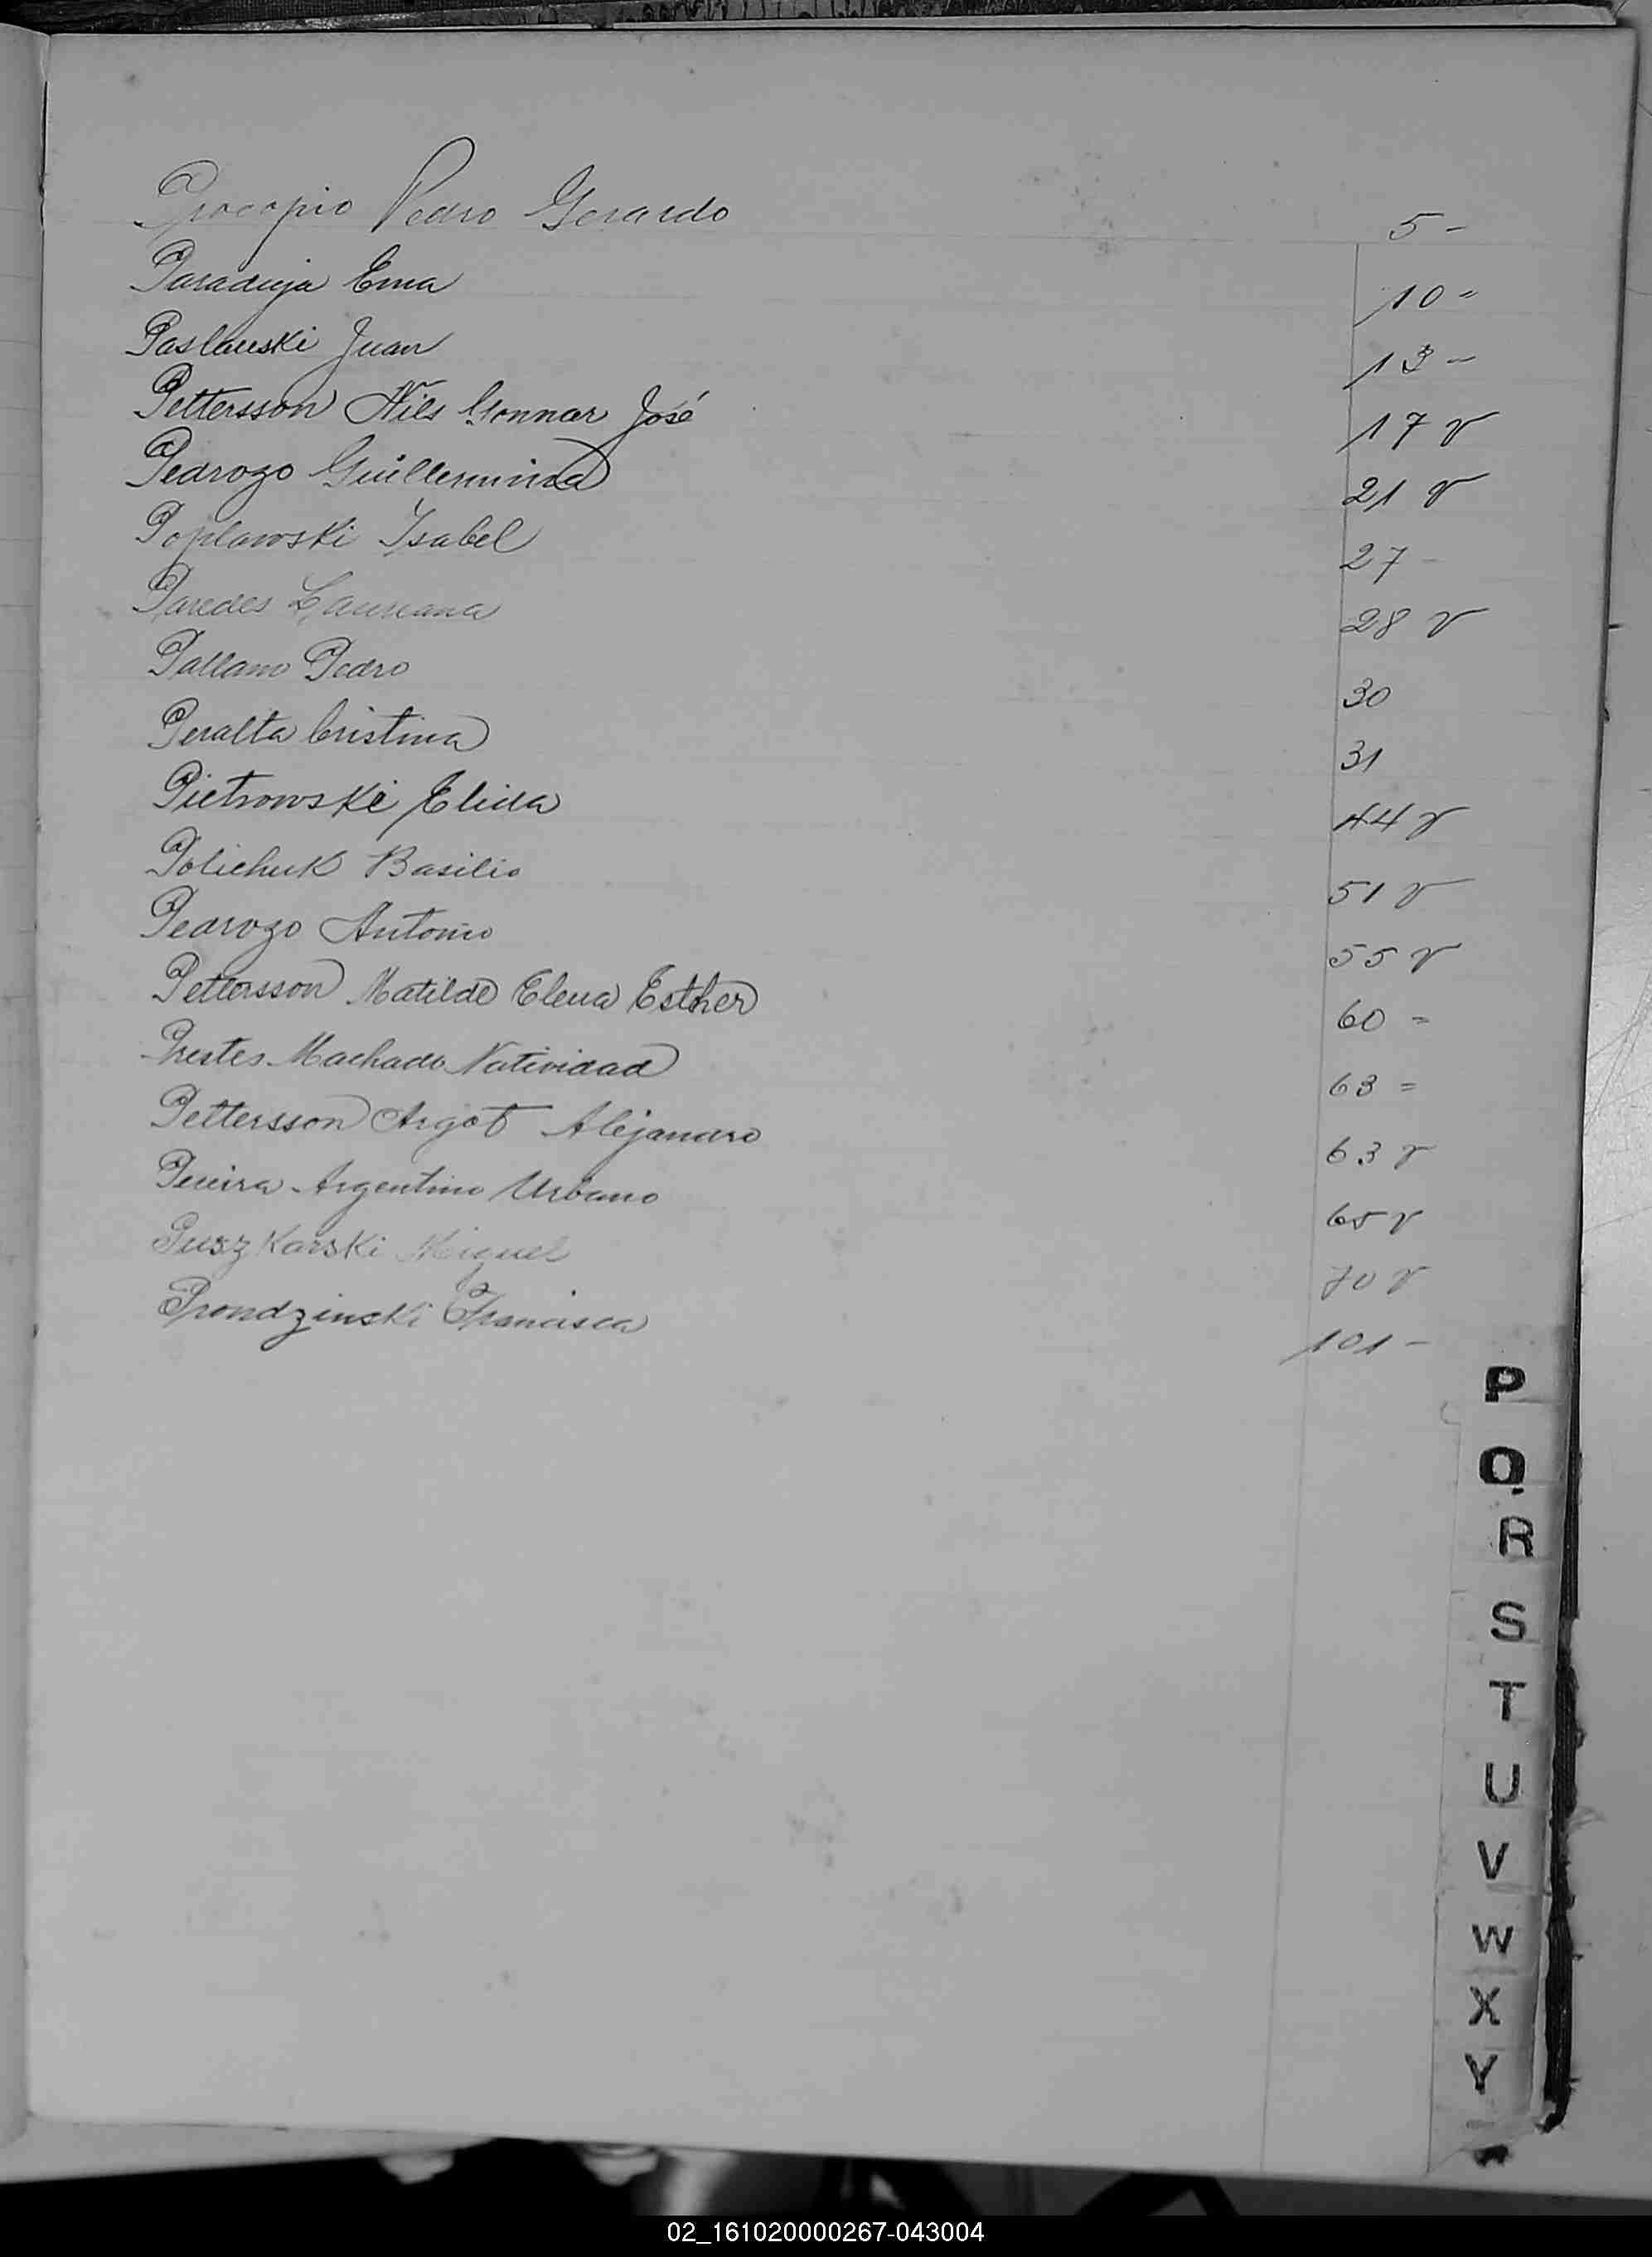 Procopio Pedro Gerardo 5 -
Ema 10 =
Paslauski Juan 13 -
Pettersson Nils Gonnar José 17 v
Pedrozo Guillermina 21 v
Poplawski Isabel 27 -
Paredes Laureana 28 v
Pallam Pedro 30
Peralta Cristina 31
Pietrowski Elida 44 v
Polichuk Basilio 51 v
Pedrozo Antonio 55 v
Pettersson Matilde Elena Esther 60 =
Prestes Machado Natividad 63 =
Pettersson Argot Alejandro 63 v
Pereira Argentino Urbano 65 v
Puszkarski Miguel 70 v
Prondzinski Francisca 101 -
P
Q
R
S
T
U
V
W
X
Y
02_161020000267-043004